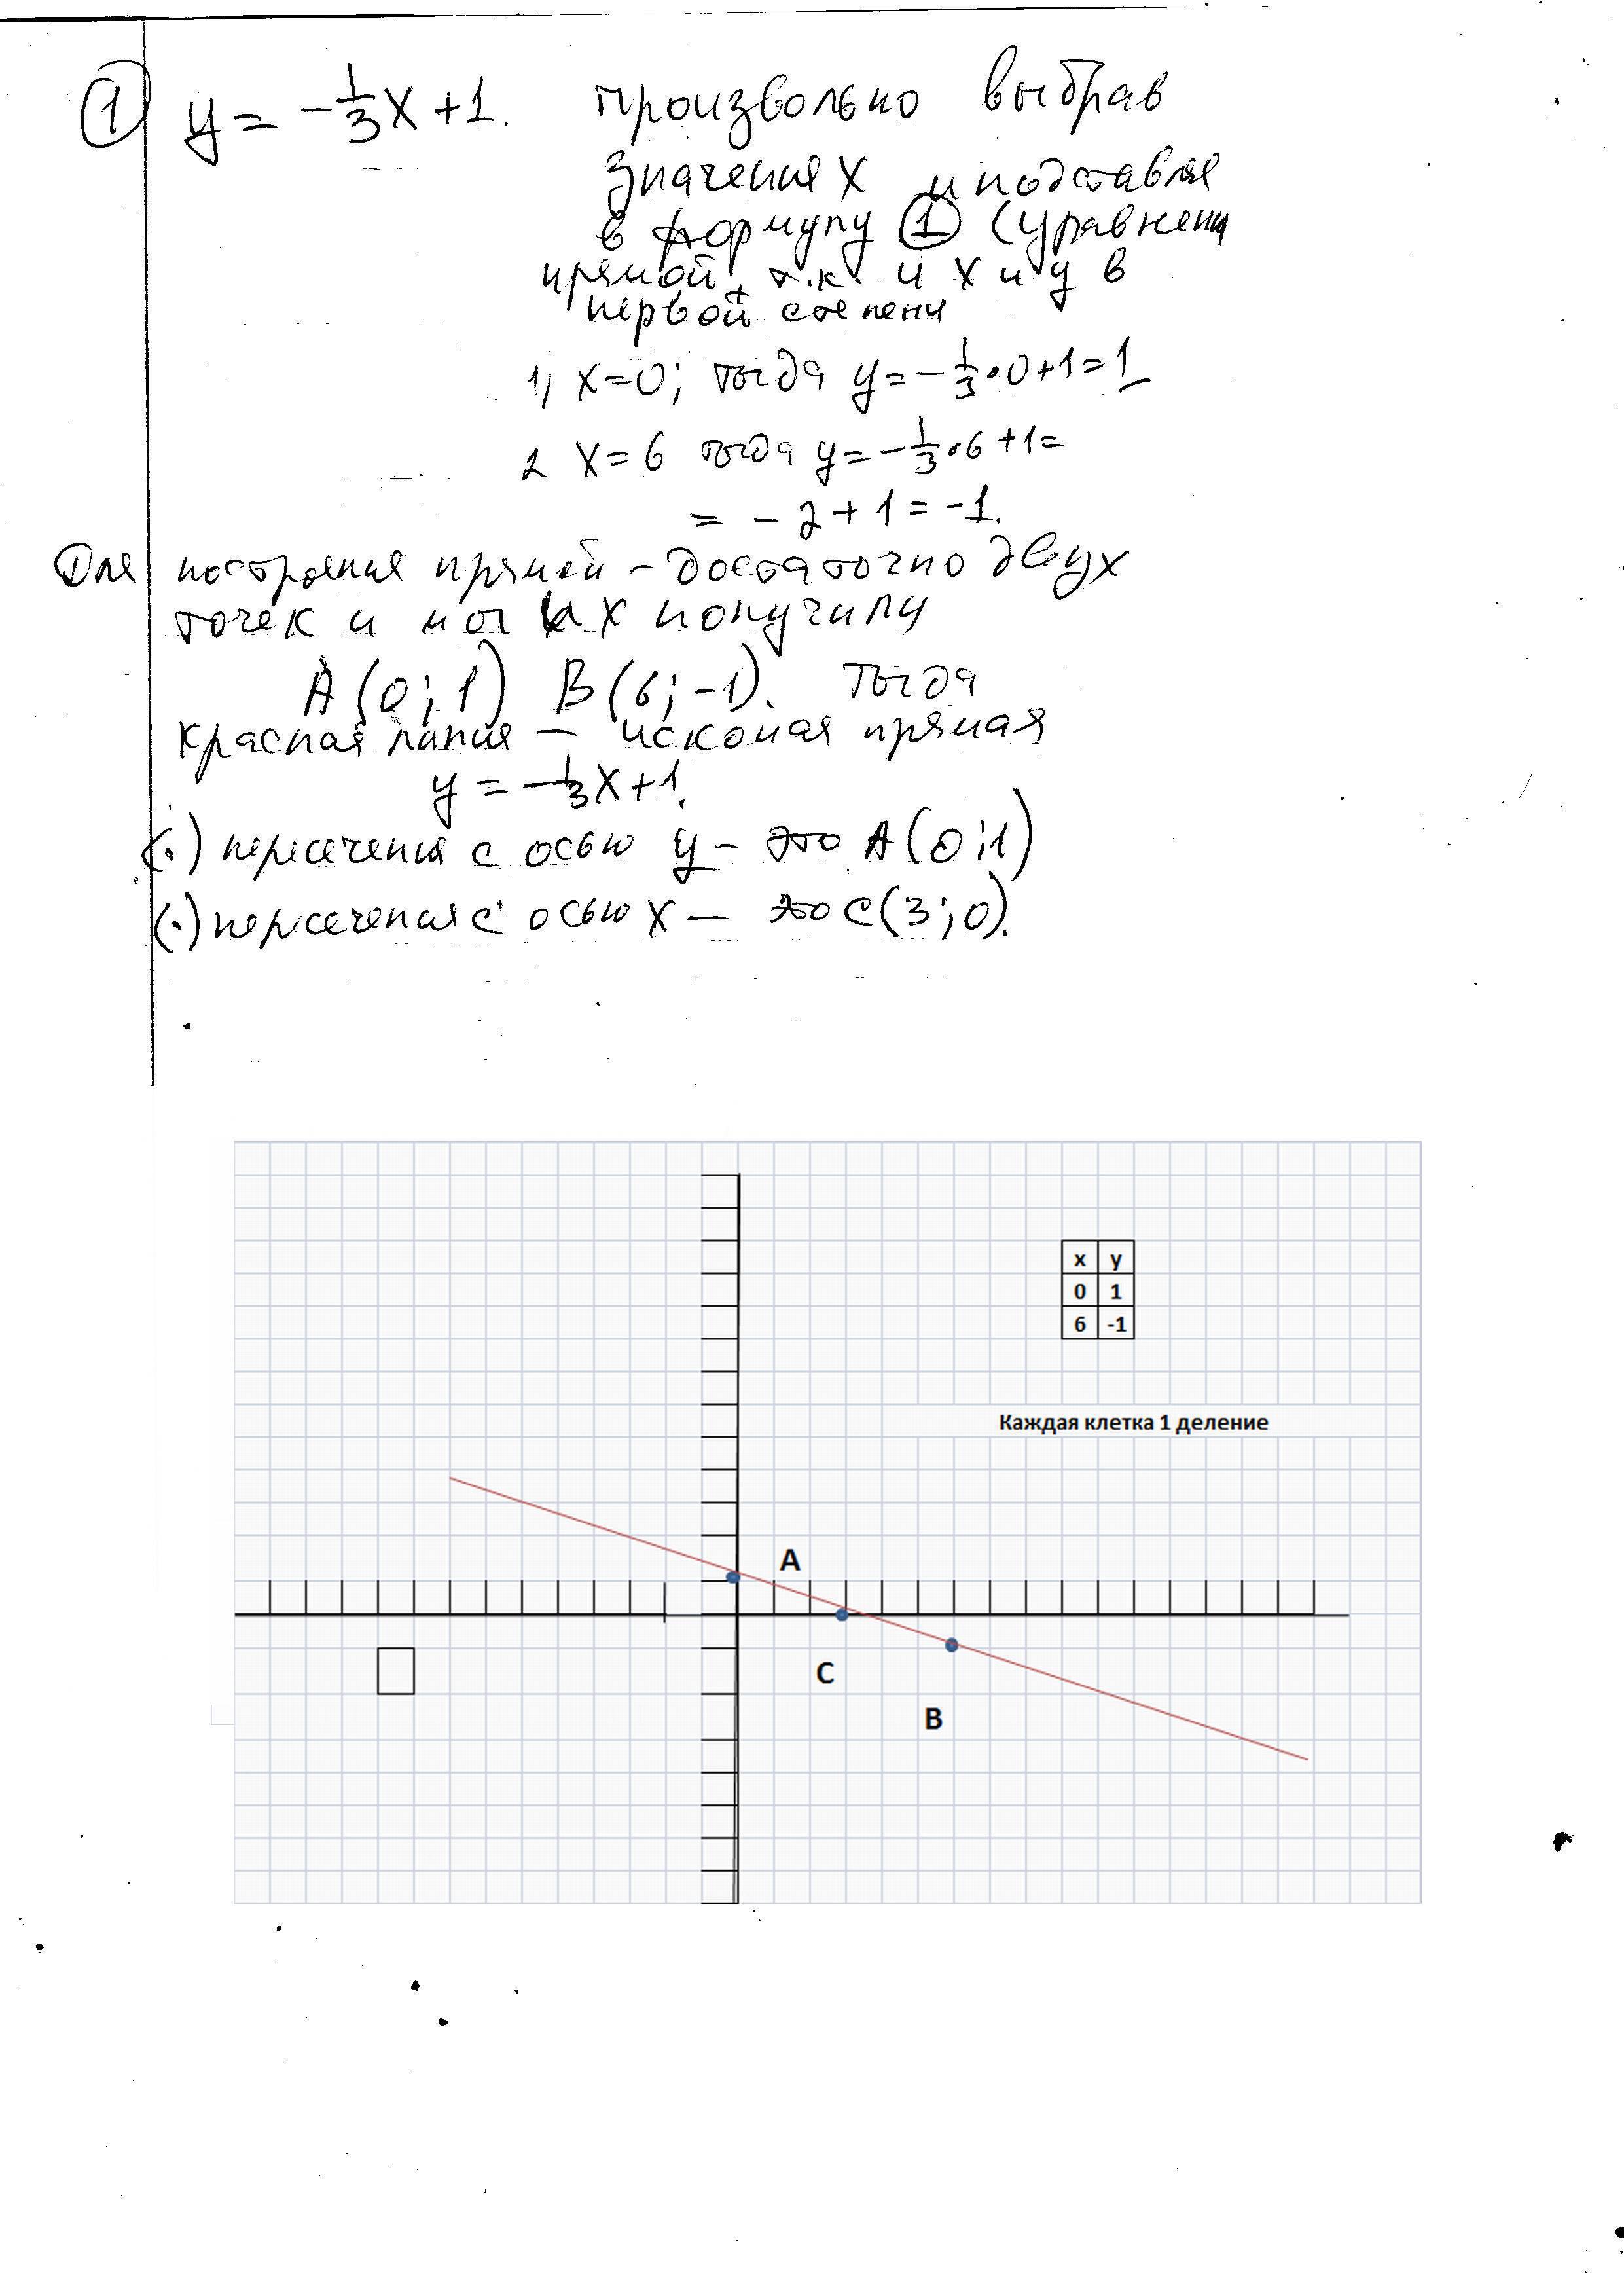 ① y = -1/3 x + 1. произвольно выбрав
значения x и подставляя
в формулу ① (уравнения
прямой, т.к. и x и y в
первой степени
1) x=0; тогда y = -1/3 • 0 + 1 = 1
2 x = 6 тогда y = -1/3 • 6 + 1 =
= -2 + 1 = -1.
Для построения прямой - достаточно двух
точек и мы их получили
A (0; 1) B (6; -1). Тогда
красная линия — искомая прямая
y = -1/3 x + 1.
(•) пересечения с осью y - это A (0; 1)
(•) пересечения с осью x — это C (3; 0).
x y
0 1
6 -1
Каждая клетка 1 деление
A
C
B